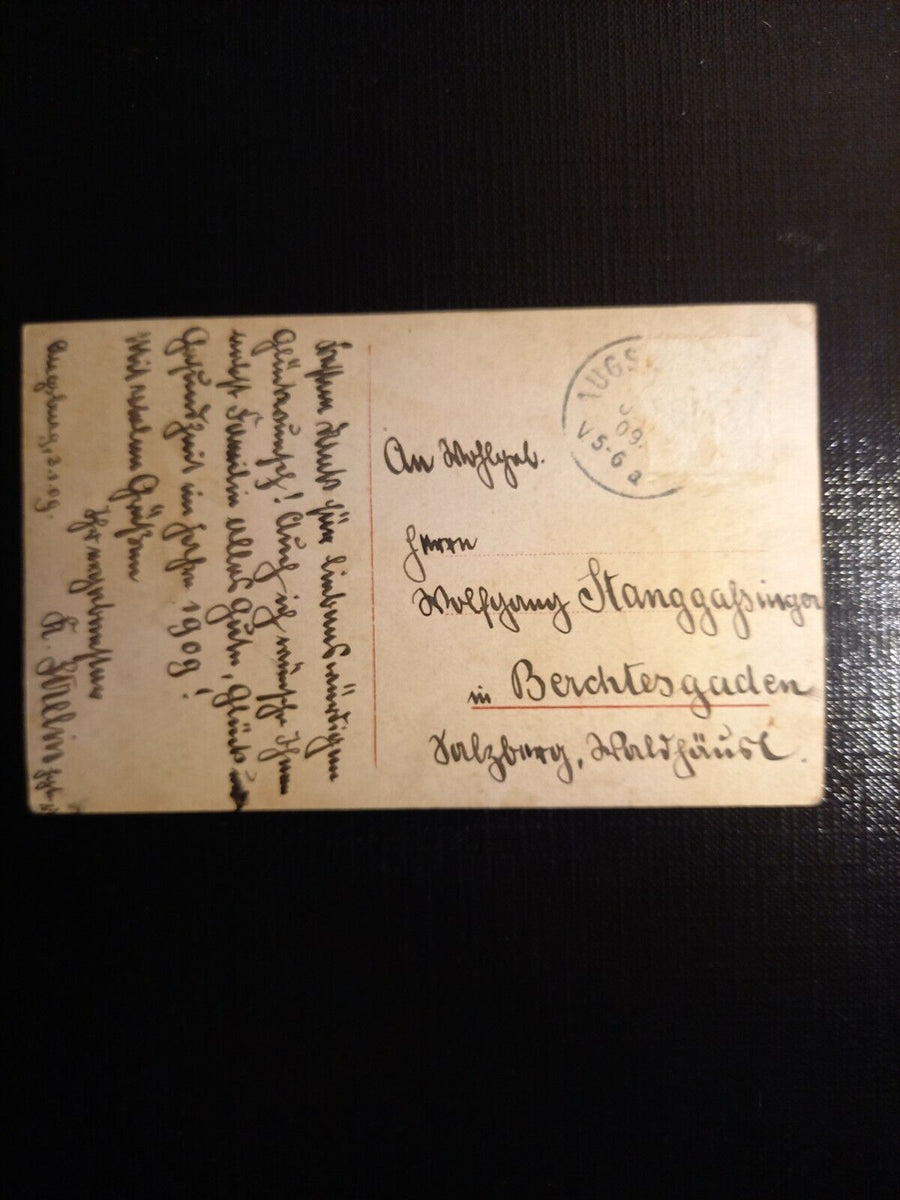 Besten Dank für liebenswürdigen
Glückwunsch! Auch ich wünsche Ihnen
nebst Familie alles Gute, Glück u.
Gesundheit im Jahre 1909!
Mit vielen Grüßen
Ihr ergebenster
Augsburg, 2.1.09.
AUGS
09.
V 5-6
a
An Wohlgeb.
Herrn
Wolfgang Stanggaßinger
in Berchtesgaden
Salzberg, Waldhäusl.